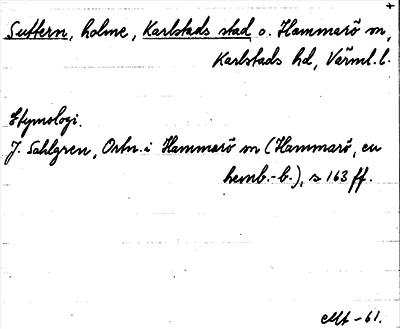 +
Suttern, holme, Karlstads stad o. Hammarö sn,
Karlstads hd, Värml. l.
Etymologi.
J. Sahlgren, Ortn. i Hammarö sn (Hammarö, en
hemb.-b.), s 163 ff.
-61.